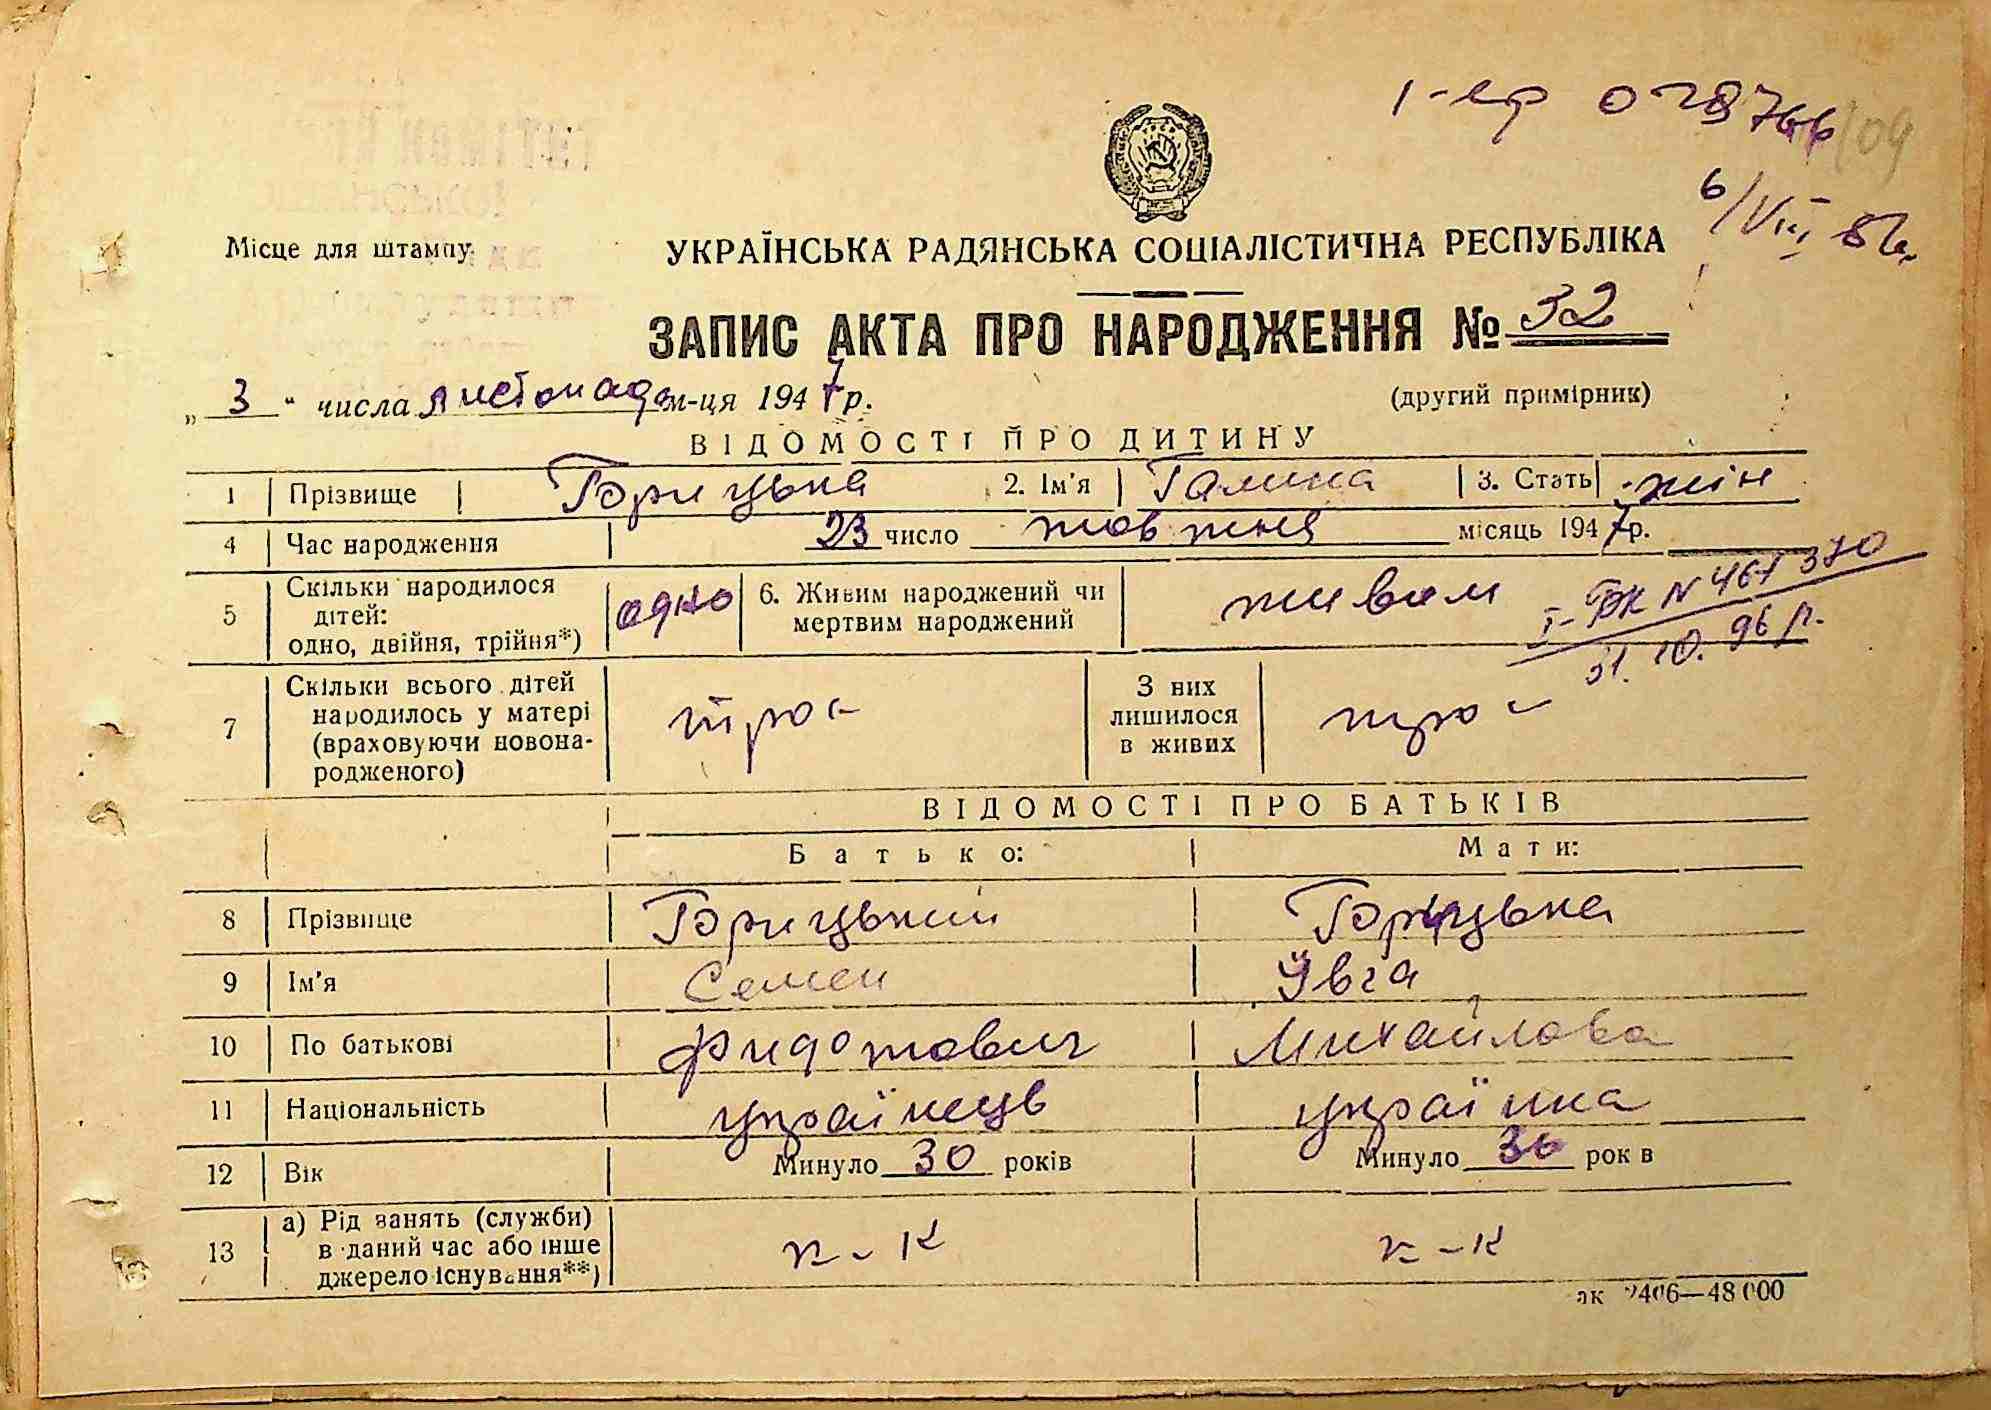 І-ер 079766 /09
6/VIII 8
Місце для штампу
УКРАЇНСЬКА РАДЯНСЬКА СОЦІАЛІСТИЧНА РЕСПУБЛІКА
ЗАПИС АКТА ПРО НАРОДЖЕННЯ № 32
„ 3 “ числа листопада м-ця 1947 р.
(другий примірник)
ВІДОМОСТІ ПРО ДИТИНУ
1 Прізвище Горицька 2. Ім'я Галина 3. Стать жін
4 Час народження 23 число жовтня місяць 1947 р.
5 Скільки народилося дітей: одно, двійня, трійня*) одно 6. Живим народжений чи мертвим народжений живим
І-БК N 461370
31.10.96 р.
7 Скільки всього дітей народилось у матері (враховуючи новонародженого) троє З них лишилося в живих троє
ВІДОМОСТІ ПРО БАТЬКІВ
Батько: Мати:
8 Прізвище Горицький Горицька
9 Ім'я Семен Ївга
10 По батькові Фидотович Михайлова
11 Національність українець українка
12 Вік Минуло 30 років Минуло 36 рок в
13 а) Рід занять (служби) в даний час або інше джерело існування**) к-к к-к
ак 2406—48000